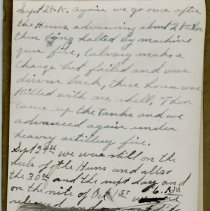 Sept 28th, again we go over after
the Huns advancing about 2 kilos
then being halted by machine
gun fire, Calvary make a
charge but failed and was
driven back, three horses were
killed with one shell, Then
came up the tanks and we
advanced again under
heavy artillery fire.
Sept 29th we were still on the
heels of the Huns and also
the 30th and the next day and
on the nite of Oct 1st
6 AM
relieved